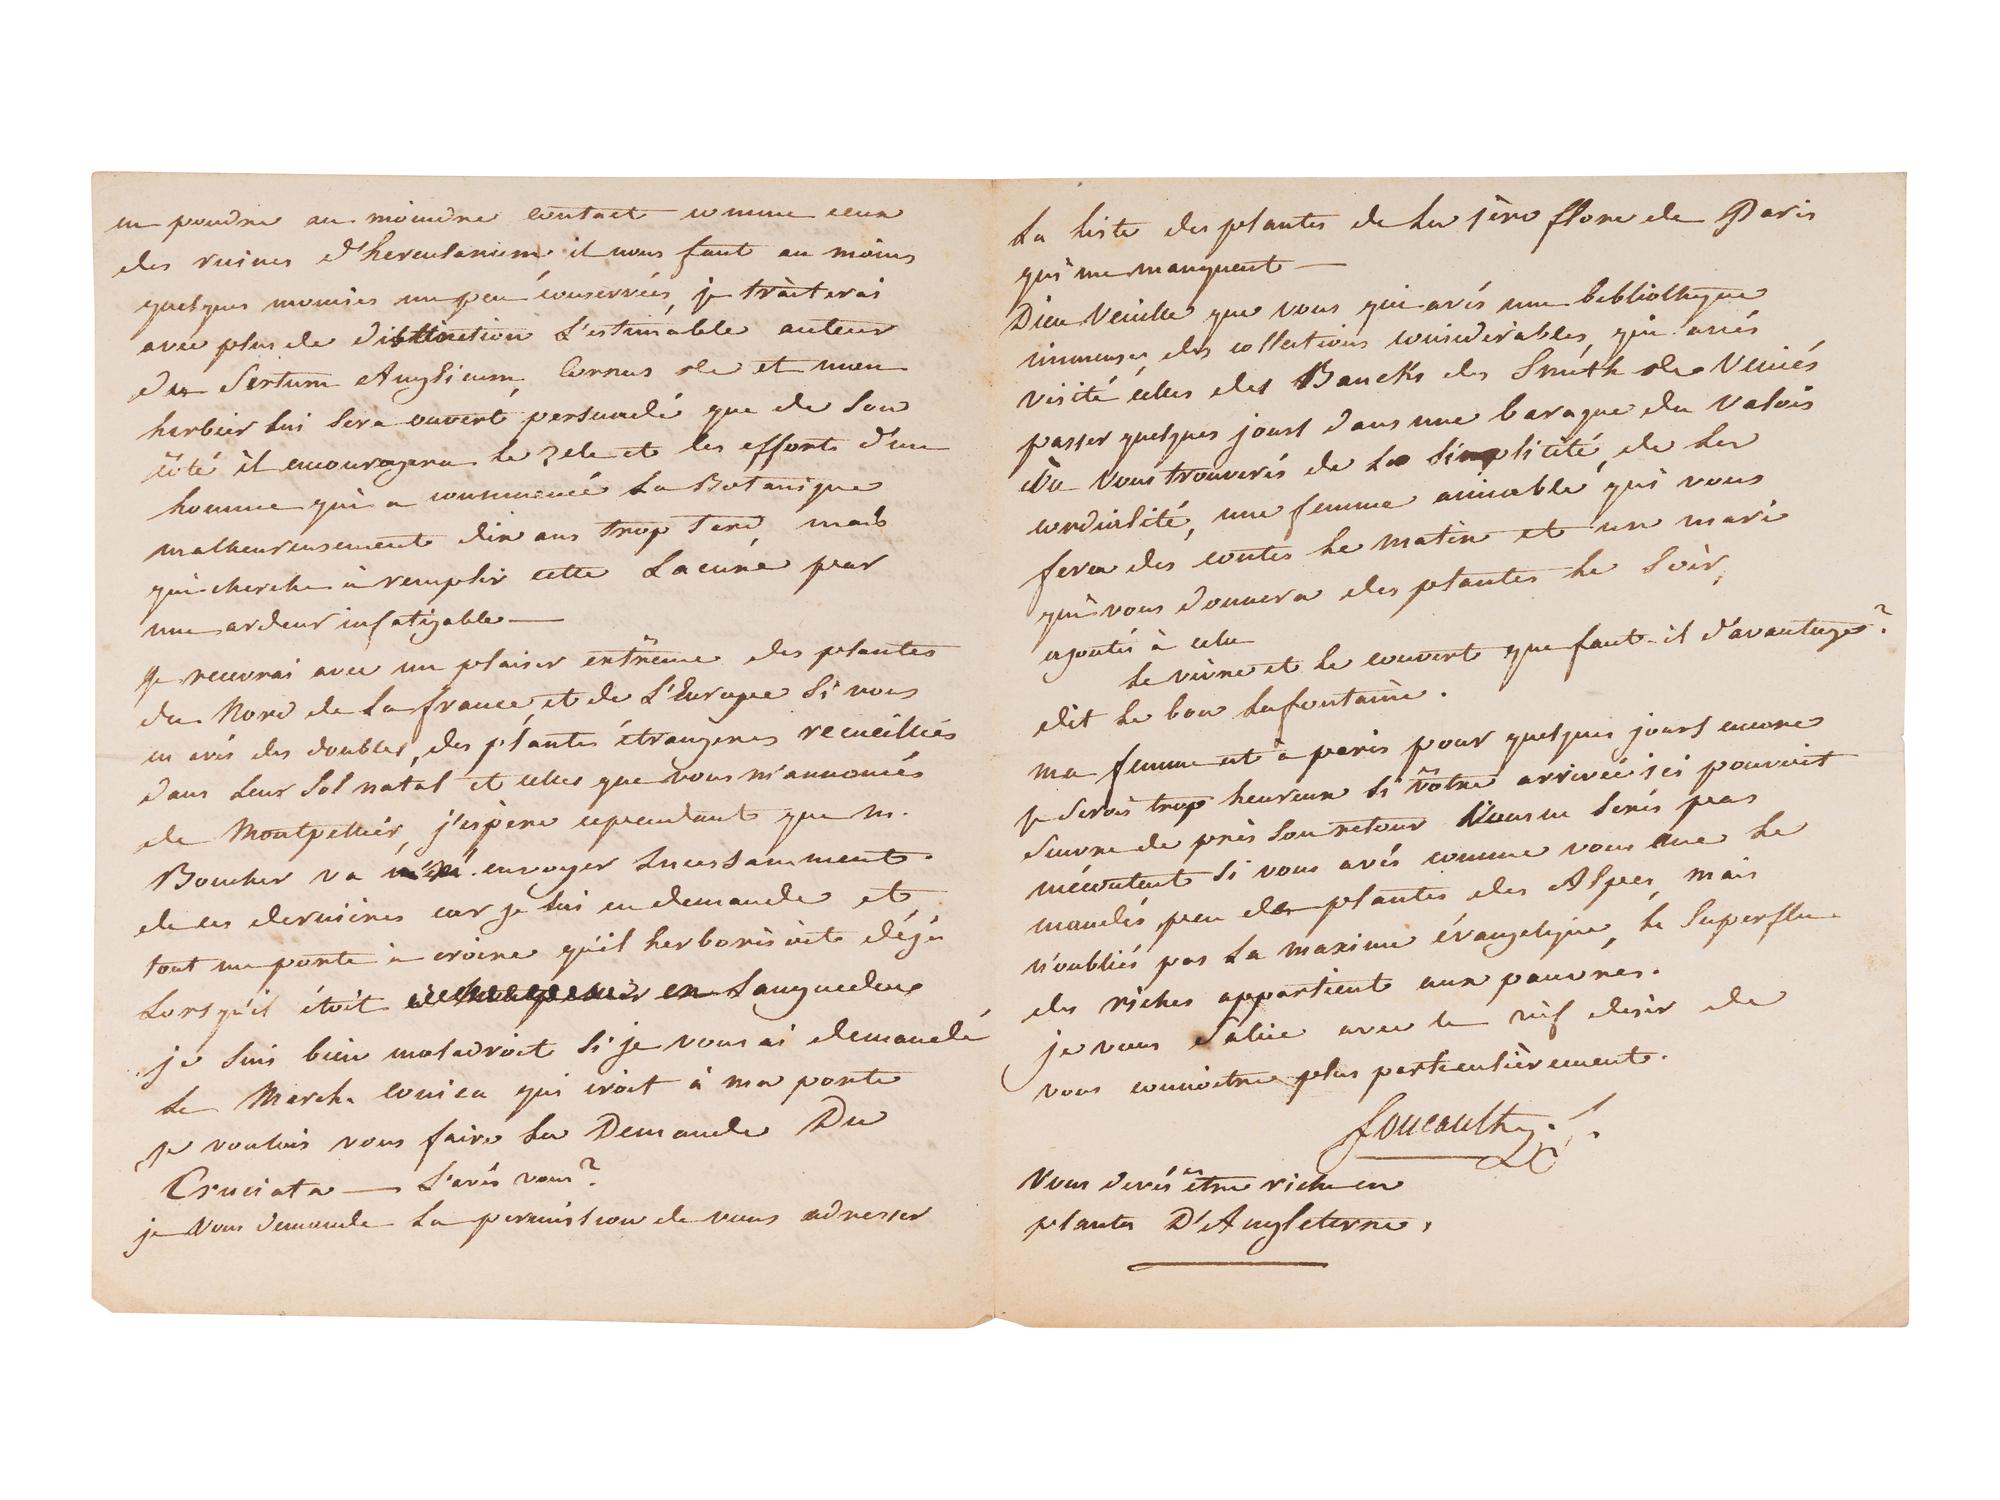 en poudre au moindre contact comme ceux
des ruines d'herculanum, il nous faut au moins
quelques momies un peu conservées, je traiterai
avec plus de distinction L'estimable auteur
du Sertum Anglicum, Cornus &c et mon
herbier lui sera ouvert persuadé que de son
côté il encouragera le zele et les efforts d'un
homme qui a commencé La Botanique
malheureusement dix ans trop tard, mais
qui cherche à remplir cette Lacune par
une ardeur infatigable —
Je recevrai avec un plaisir extrême des plantes
du Nord de La france et de L'Europe si vous
en avés des doubles, des plantes étrangeres recueillies
dans Leur Sol natal et celles que vous m'annoncés
de Montpellier, j'espere cependant que m.
Boucher va envoyer incessamment.
de ces dernieres car je lui en demande et
tout me porte à croire qu'il herborisoit déjà
Lorsqu'il étoit en Languedoc
je suis bien maladroit si je vous ai demandé
Le March. conica qui croit à ma porte
je voulois vous faire La Demande Du
Cruciata — L'avés vous?
je vous demande La permission de vous adresser
La liste des plantes de La 1ère flore de Paris
qui me manquent —
Dieu Veuille que vous qui avés une bibliotheque
immense, des collections considerables, qui avés
visité celles des Bancks des Smith &c Veniés
passer quelques jours dans une baraque du Valois
où Vous trouverés de La simplicité, de La
cordialité, une femme aimable qui vous
fera des contes Le matin et un mari
qui vous donnera des plantes Le Soir,
ajoutés à cela
Le vivre et Le couvert que faut-il d'avantage?
dit Le bon Lafontaine.
ma femme est à paris pour quelques jours encore
je serois trop heureux si vôtre arrivée ici pouvoit
suivre de près son retour Vous ne serés pas
mécontent si vous avés comme vous me Le
mandés peu de plantes des Alpes, mais
n'oubliés pas La maxime évangelique, Le Superflu
des riches appartient aux pauvres.
je vous Salue avec Le vif desir de
vous connoitre plus particulièrement.
foucault
Vous devés être riche en
plantes D'Angleterre.